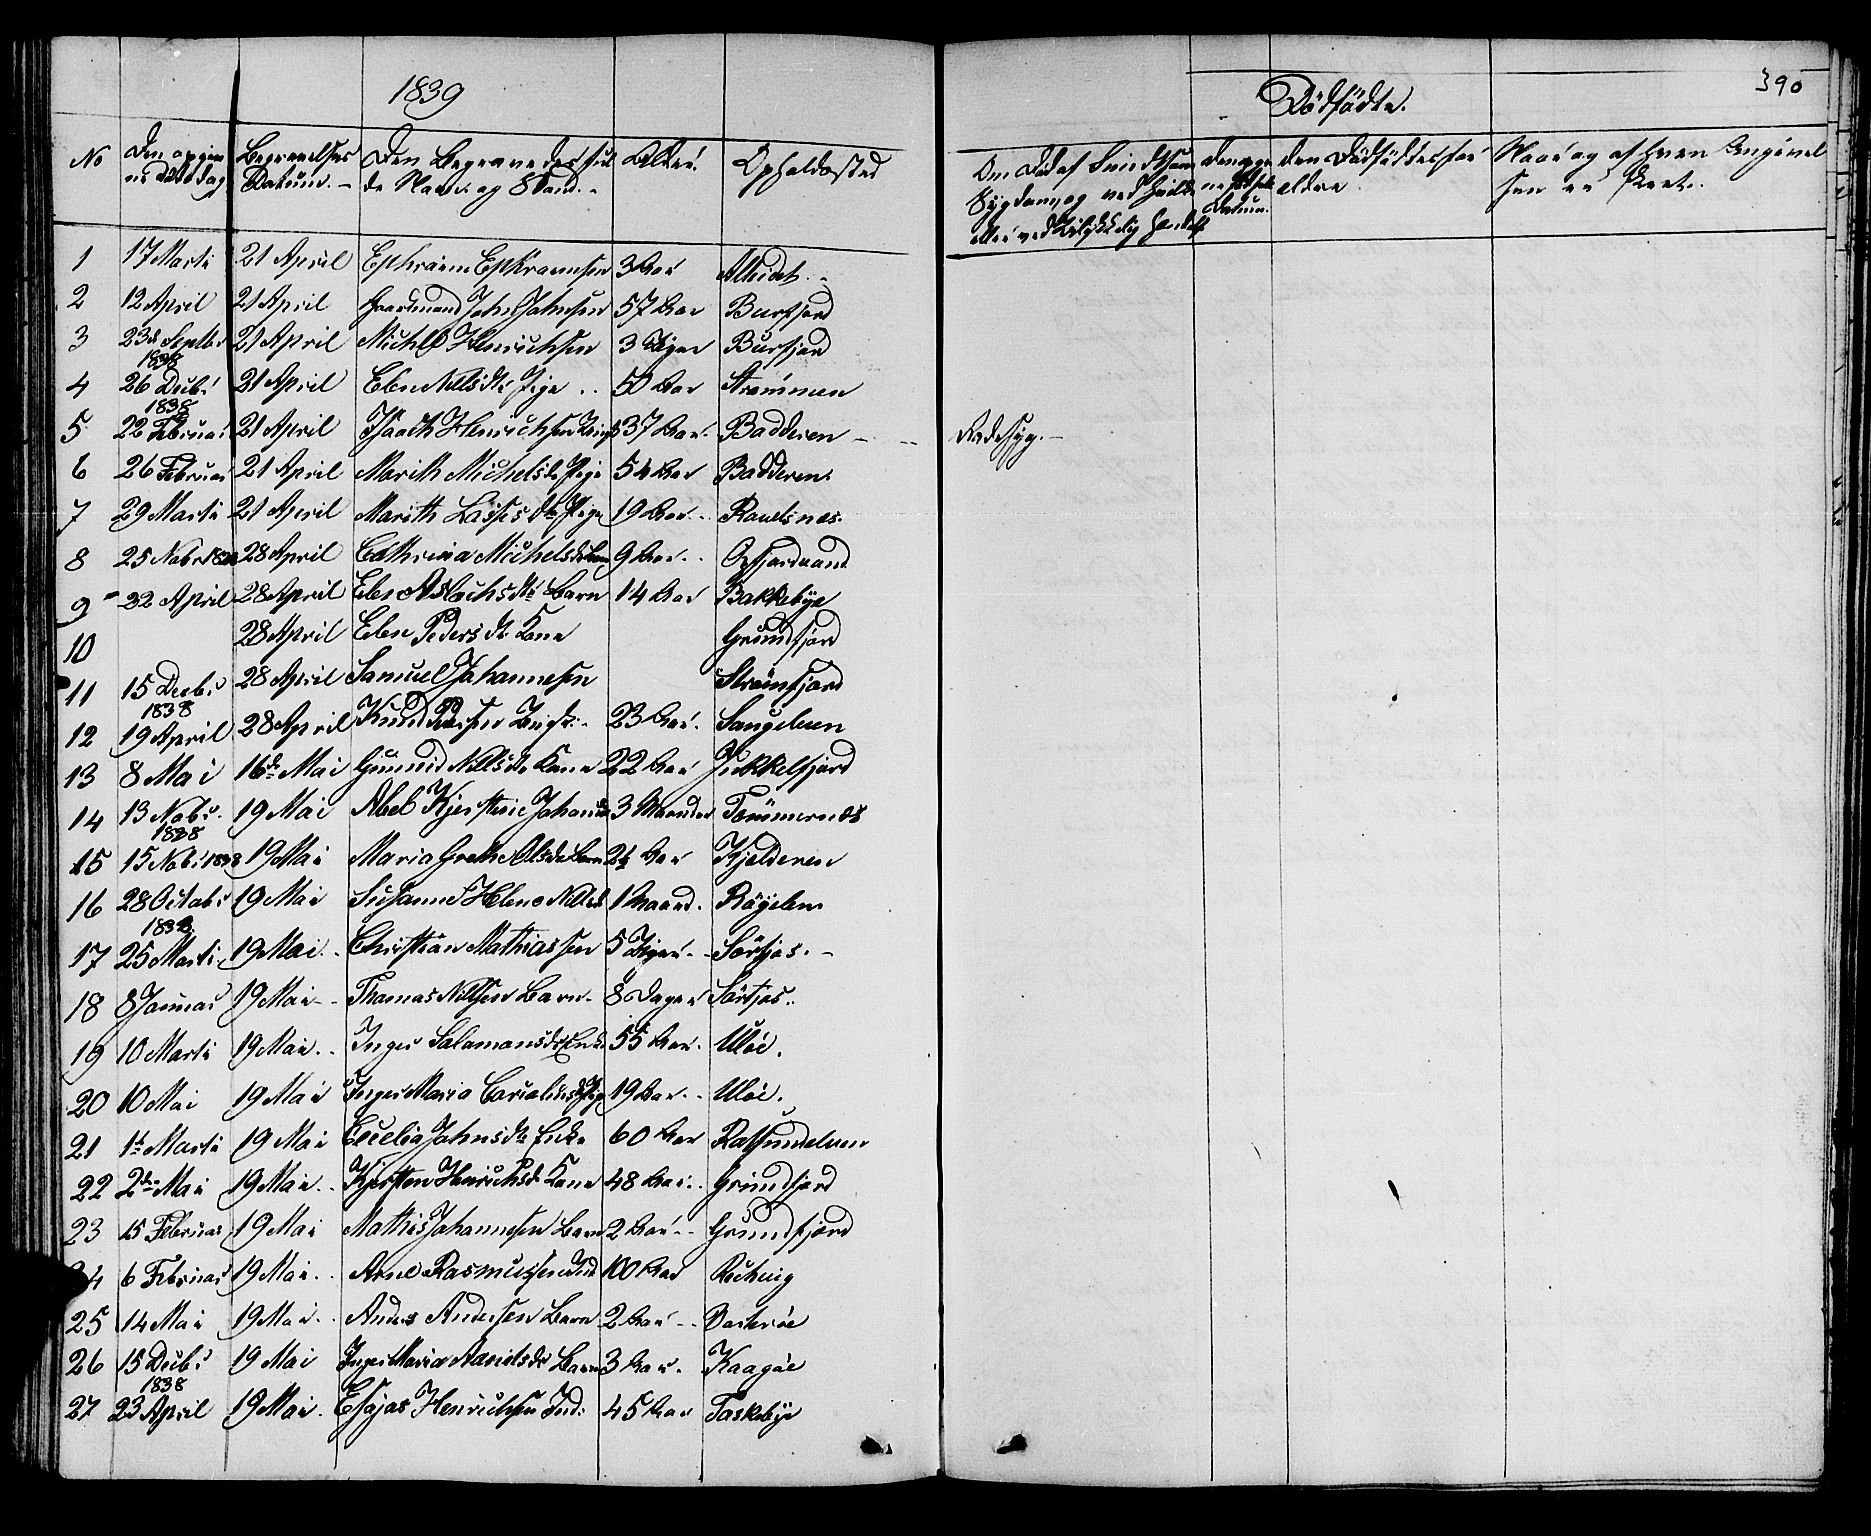 1839
No
Den opgivne Dødsdag
Begravelses Datum. -
Den Begravedes fulde Navn og Stand. -
Alder.
Opholdssted
Dødfødte.
390
Om Død af Svindtsom Sygdom, og ved hvilken eller ved Ulykkelig Hendelse
den opgivne Datum.
den Dødfødtes forældre.
Naar og af hvem Angivelsen er skeet.
1 17 Marti 21 April Ephraim Ephraimsen 3 Aar Alteidet. -
2 12 April 21 April Gaardmand John Johnsen 57 Aar Burfjord
3 23de Septbr 1838 21 April Michl Henrichsen 3 Uger Burfjord
4 26 Decbr 1838 21 April Elen Nilsdtr Pige .. 50 Aar Strømmen
5 22 Februar 21 April Isaach Henrichsen 37 Aar. Badderen - Radesyg. -
6 26 Februar 21 April Marith Michelsdr Pige 54 Aar Badderen.
7 29 Marti 21 April Marith Lassesdtr Pige 19 Aar. . Rauelsnæs.
8 25 Nobr 1838 28 April Cathrina Michelsdr Barn 9 Aar . . Oxfjordvand
9 22 April 28 April Elen Aslachsdtr Barn 14 Aar Bakkebye
10 28 April Elen Pedersdtr Kone Grundfjord
11 15 Decbr 1838 28 April Samuel Johannesen Straumfjord
12 19 April 28 April Knud 23 Aar. Sangelven
13 8 Mai 16de Mai Gunnild Nilsdtr Kone 22 Aar Jøkkelfjord
14 13 Nobr. 1838 19 Mai Abel Kjerstine Johansdr 3 Maaneder Tømmernæs
15 15 Nobr 1838 19 Mai Maria Greth Olsdr Barn 2½ Aar Kjelderen
16 28 Octobr 1838 19 Mai Susanne Helene Nilsd 1 Maaned. Røyelen
17 25 Marti 19 Mai. Christian Mathiassen 5 Uger - Sørfjor. -
18 8 Januar 19 Mai - Thomas Nilsen Barn. 8 Dage Sørfjor..
19 10 Marti 19 Mai . . Inger Salamonsdr Enke 55 Aar. Uløe.
20 10 Mai 19 Mai Inger Maria Pige 19 Aar - Uløe.
21 1te Marti 19 Mai Cecelia Johnsdtr Enke 60 Aar Rotsundelven
22 2den Mai 19 Mai . . Kjersten Henrichsdr Kone 48 Aar . . Grundfjord
23 15 Februar 19 Mai Mathis Johannesen Barn 2 Aar - - Grundfjord
24 6 Februar 19 Mai . . Arne Rasmussen Ind 100 Aar
25 14 Mai 19 Mai . . Anders Andersen Barn 2 Aar - -
26 15 Decbr 1838 19 Mai Inger Maria Barn 3 Aar. Kaagøe
27 23 April 19 Mai . Esajas Henrichsen Ind: 45 Aar Taskebye